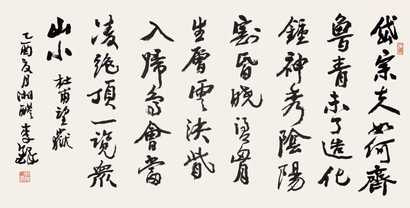 岱宗夫如何齊
魯青未了造化
鍾神秀陰陽
割昏曉盪胸
生層雲決眥
入歸鳥會當
凌絕頂一覽眾
山小 杜甫望嶽
乙酉夏月湘醴李